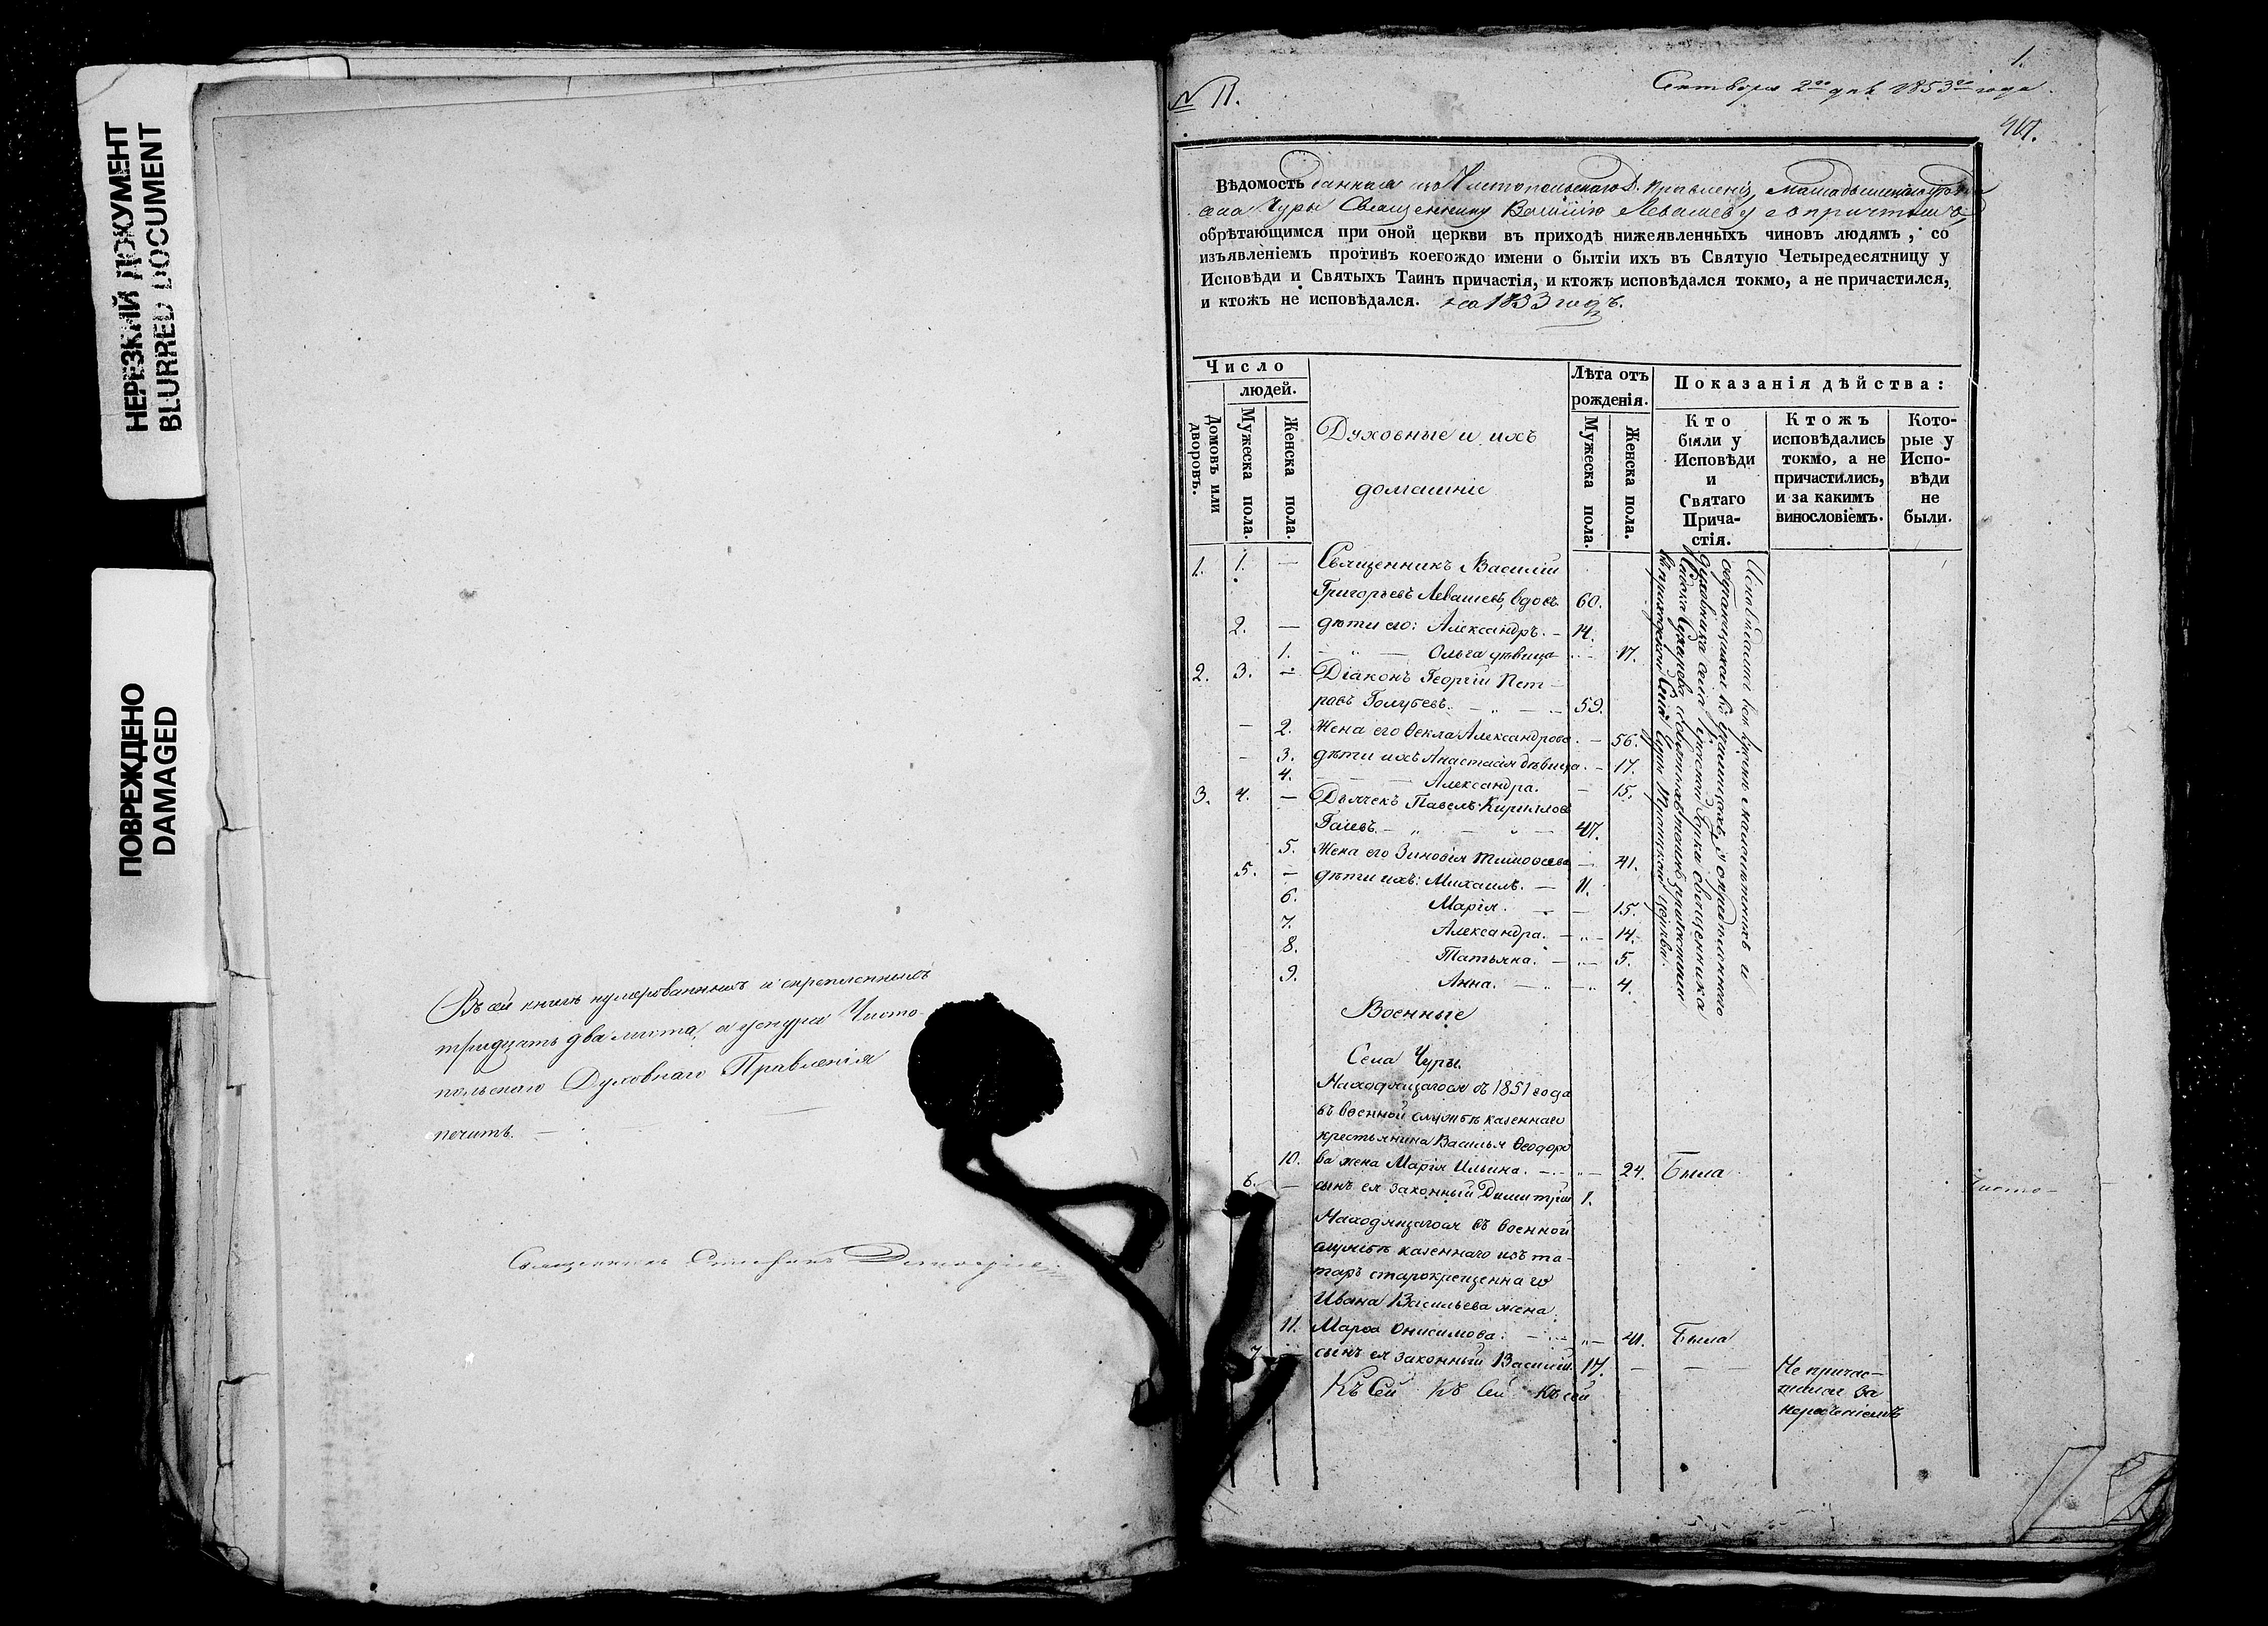 НЕРЕЗКИЙ ДОКУМЕНТ
BLURRED DOCUMENT
ПОВРЕЖДЕНО
DAMAGED
Въ сей книгѣ нумерованныхъ и скрепленныхъ
тридцать два листа, а у снура Чисто-
польскаго Духовнаго Правленія
печать.
Священникъ
1.
№ 11.
Октября 2го дня 1853го года.
Вѣдомость данная изъ Чистопольскаго Д. Правленія, Мамадышскаго уѣзда
села Чуры Священнику Василію Левашеву съ причтомъ о
обрѣтающимся при оной церкви въ приходѣ нижеявленныхъ чиновъ людямъ, со
изъявленіемъ противъ коегождо имени о бытіи ихъ въ Святую Четыредесятницу у
Исповѣди и Святыхъ Таинъ причастія, и ктожъ исповѣдался токмо, а не причастился,
и ктожъ не исповѣдался. на 1853 годъ.
Число
людей.
Домовъ или дворовъ.
Мужеска пола.
Женска пола.
Духовные и ихъ
домашніе
Лѣта отъ
рожденія.
Мужеска пола.
Женска пола.
Показанія дѣйства:
Кто
были у
Исповѣди
и
Святаго
Прича-
стія.
Ктожъ
исповѣдались
токмо, а не
причастились,
и за какимъ
винословіемъ.
Кото-
рые у
Испо-
вѣди
не
были.
1. 1. — Священникъ Василій
Григорьевъ Левашевъ, вдовъ 60.
2. — дѣти его: Александръ. — 14.
1. — " — Ольга дѣвица — 17.
2. 3. — Діаконъ Георгій Пет-
ровъ Голубевъ. — " — 59.
— 2. Жена его Ѳекла Александрова. — 56.
— 3. дѣти ихъ Анастасія дѣвица. — 17.
4. — — Александра. — 15.
3. 4. — Дьячекъ Павелъ Кирилловъ
Галевъ. — " — " — 47.
5. Жена его Зиновія Тимоѳеева — 41.
5. — дѣти ихъ: Михаилъ. — 11.
6. Марія. — — 15.
7. Александра. — " — 14.
8. Татьяна. — " — 5.
9. Анна. — " — " — 4.
Военные
Села Чуры.
Находящагося съ 1851 года
въ военной службѣ казеннаго
крестьянина Василья Ѳеодоро
10. ва жена Марія Ильина. — " — 24. Была
6. — сынъ ея законный Димитрій 1.
Находящагося въ военной
службѣ казеннаго изъ та-
таръ старокрещеннаго
Ивана Васильева жена
11. Марѳа Онисимова: — " — 41. Была
7. — сынъ ея законный Василій. 17. — —
Не причас-
тился за
нерадѣніемъ
Къ Сей Къ Сей Къ сей
Чисто-